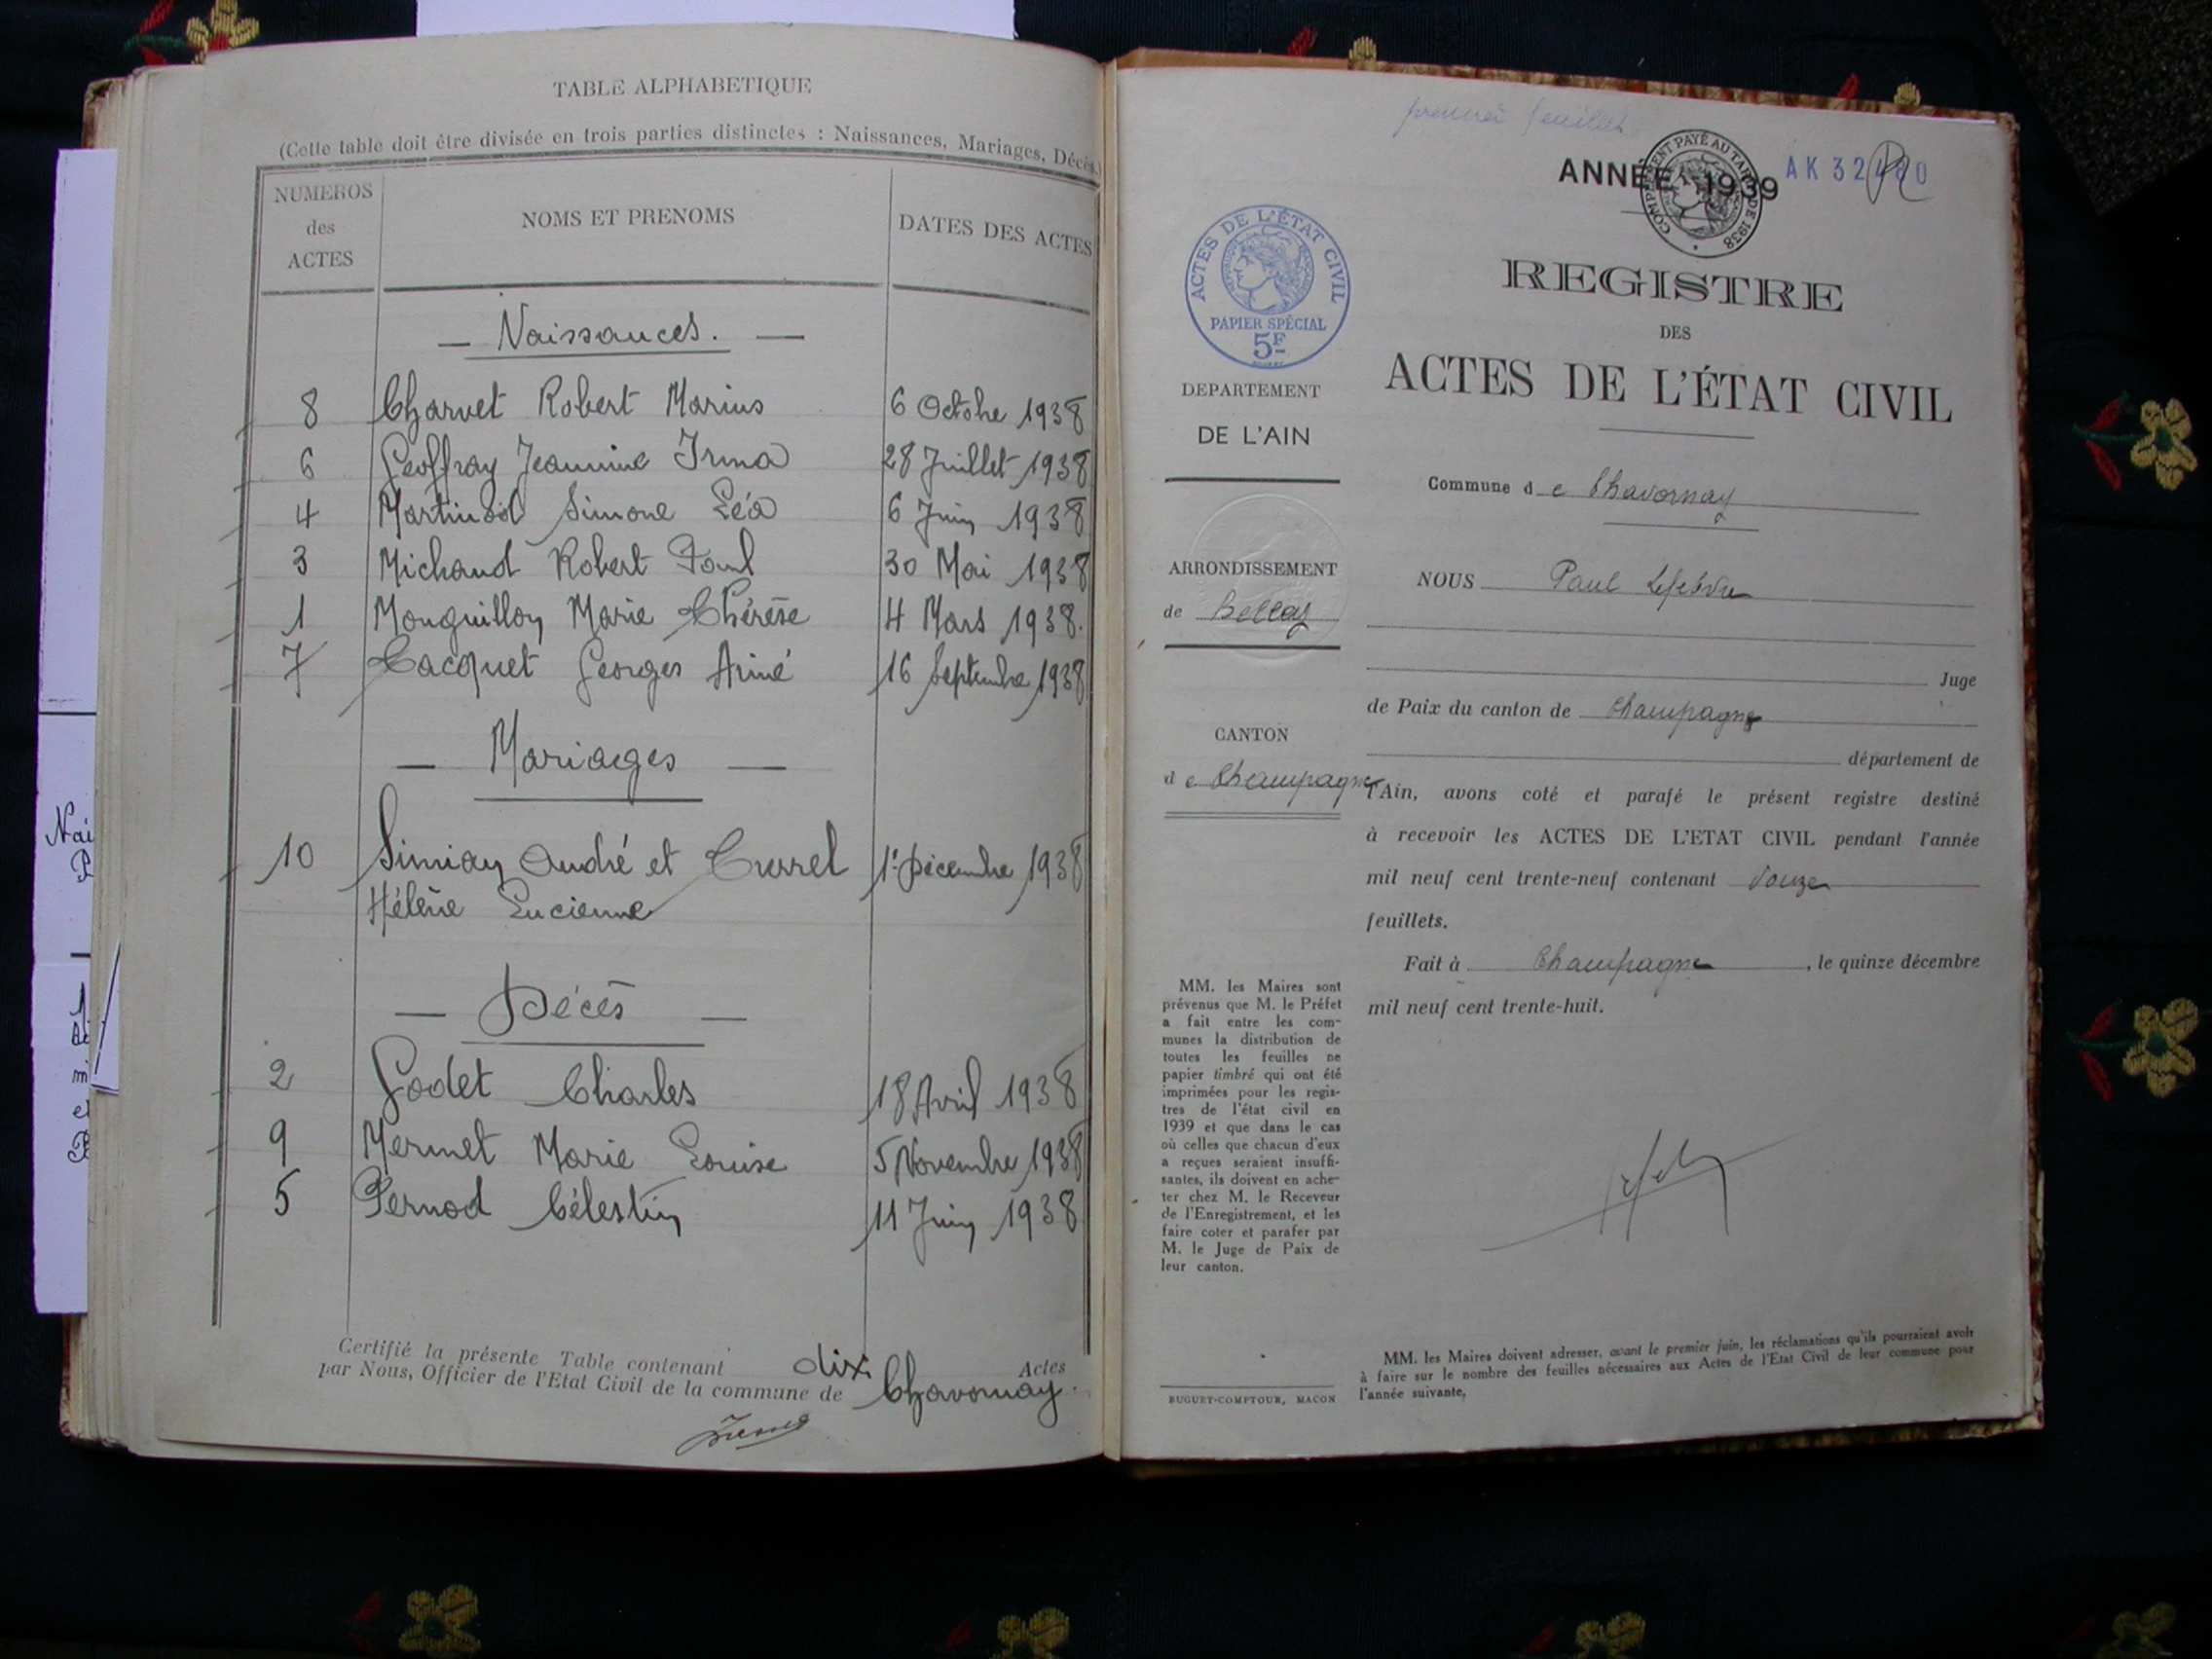 TABLE ALPHABETIQUE
(Cette table doit être divisée en trois parties distinctes : Naissances, Mariages, Décès)
NUMEROS des ACTES
NOMS ET PRENOMS
DATES DES ACTES
— Naissances. —
8 Charvet Robert Marius 6 Octobre 1938
6 Geoffray Jeannine Irma 28 Juillet 1938
4 Martinod Simone Léa 6 Juin 1938
3 Michaud Robert Paul 30 Mai 1938
1 Monguillon Marie Thérèse 4 Mars 1938.
7 Tacquet Georges Aimé 16 Septembre 1938
— Mariages —
10 Simian André et Currel 1er Décembre 1938
Hélène Lucienne
— Décès —
2 Godet Charles 18 Avril 1938
9 Mermet Marie Louise 5 Novembre 1938
5 Pernod Célestin 11 Juin 1938
Certifié la présente Table contenant dix Actes
par Nous, Officier de l'Etat Civil de la commune de Chavornay
Nai
premier feuillet
ANNÉE 1939
AK 32
COMPLÉMENT PAYÉ AU TARIF DE 1938
ACTES DE L'ÉTAT CIVIL
PAPIER SPÉCIAL
5F
DEPARTEMENT
DE L'AIN
ARRONDISSEMENT
de Belley
CANTON
de Champagne
MM. les Maires sont
prévenus que M. le Préfet
a fait entre les com-
munes la distribution de
toutes les feuilles ne
papier timbré qui ont été
imprimées pour les regis-
tres de l'état civil en
1939 et que dans le cas
où celles que chacun d'eux
a reçues seraient insuffi-
santes, ils doivent en ache-
ter chez M. le Receveur
de l'Enregistrement, et les
faire coter et parafer par
M. le Juge de Paix de
leur canton.
BUGUET-COMPTOUR, MACON
REGISTRE
DES
ACTES DE L'ÉTAT CIVIL
Commune de Chavornay
NOUS Paul Lefebvre
Juge
de Paix du canton de Champagne
département de
l'Ain, avons coté et parafé le présent registre destiné
à recevoir les ACTES DE L'ETAT CIVIL pendant l'année
mil neuf cent trente-neuf contenant douze
feuillets.
Fait à Champagne, le quinze décembre
mil neuf cent trente-huit.
MM. les Maires doivent adresser, avant le premier juin, les réclamations qu'ils pourraient avoir
à faire sur le nombre des feuilles nécessaires aux Actes de l'Etat Civil de leur commune pour
l'année suivante,